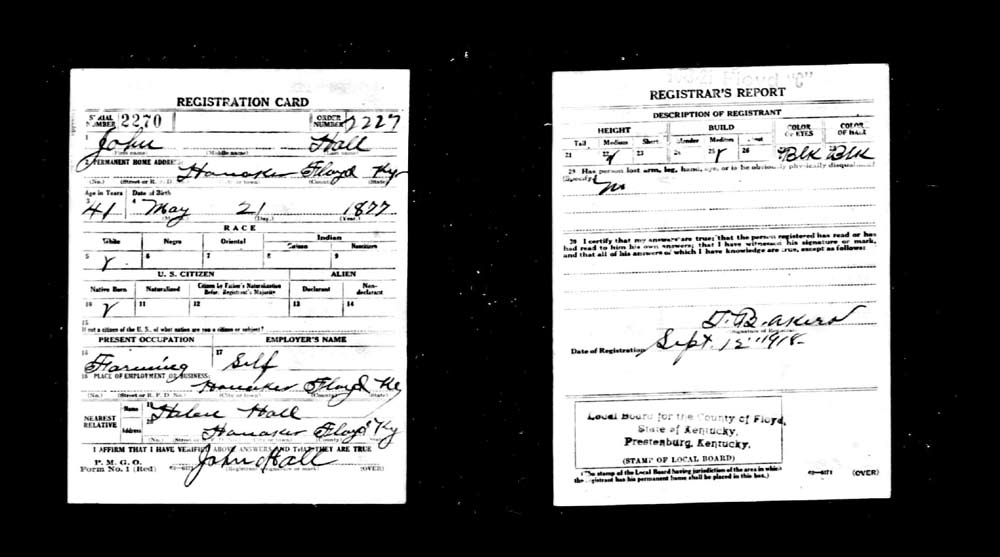 REGISTRATION CARD
SERIAL NUMBER 2270 ORDER NUMBER 2227
1 John Hall
First name) (Middle name) Last name)
2 PERMANENT HOME ADDRESS: Honaker Floyd Ky
(No.) (Street or R. F. D. No.) (City or town) (County) (State)
Age in Years Date of Birth
3 41 4 May 21 1877
(Month.) (Day.) (Year.)
RACE
White Negro Oriental Indian
Citizen Noncitizen
5 6 7 8 9
U. S. CITIZEN ALIEN
Native Born Naturalized Citizen by Father's Naturalization Before Registrant's Majority Declarant Non-declarant
10 11 12 13 14
15
If not a citizen of the U. S., of what nation are you a citizen or subject?
PRESENT OCCUPATION EMPLOYER'S NAME
16 Farming 17 Self
18 PLACE OF EMPLOYMENT OR BUSINESS:
Honaker Floyd Ky
(No.) (Street or R. F. D. No.) (City or town) (County) (State)
NEAREST RELATIVE
Name 19 Helen Hall
Address 20 Honaker Floyd Ky
(No.) (Street or R. F. D. No.) (City or town) (County) (State)
I AFFIRM THAT I HAVE VERIFIED ABOVE ANSWERS AND THAT THEY ARE TRUE
P. M. G. O.
Form No. 1 (Red) John Hall
(Registrant's signature or mark) (OVER)
Floyd "C"
REGISTRAR'S REPORT
DESCRIPTION OF REGISTRANT
HEIGHT BUILD COLOR OF EYES COLOR OF HAIR
Tall Medium Short Slender Medium Stout
21 22 23 24 25 26 27 Blk 28 Blk
29 Has person lost arm, leg, hand, eye, or is he obviously physically disqualified?
(Specify.) no
30 I certify that my answers are true; that the person registered has read or has
had read to him his own answers; that I have witnessed his signature or mark,
and that all of his answers of which I have knowledge are true, except as follows:
(Signature of Registrar)
Date of Registration Sept. 12" 1918
Local Board for the County of Floyd,
State of Kentucky,
Prestonburg, Kentucky.
(STAMP OF LOCAL BOARD)
(The stamp of the Local Board having jurisdiction of the area in which
the registrant has his permanent home shall be placed in this box.)
(OVER)